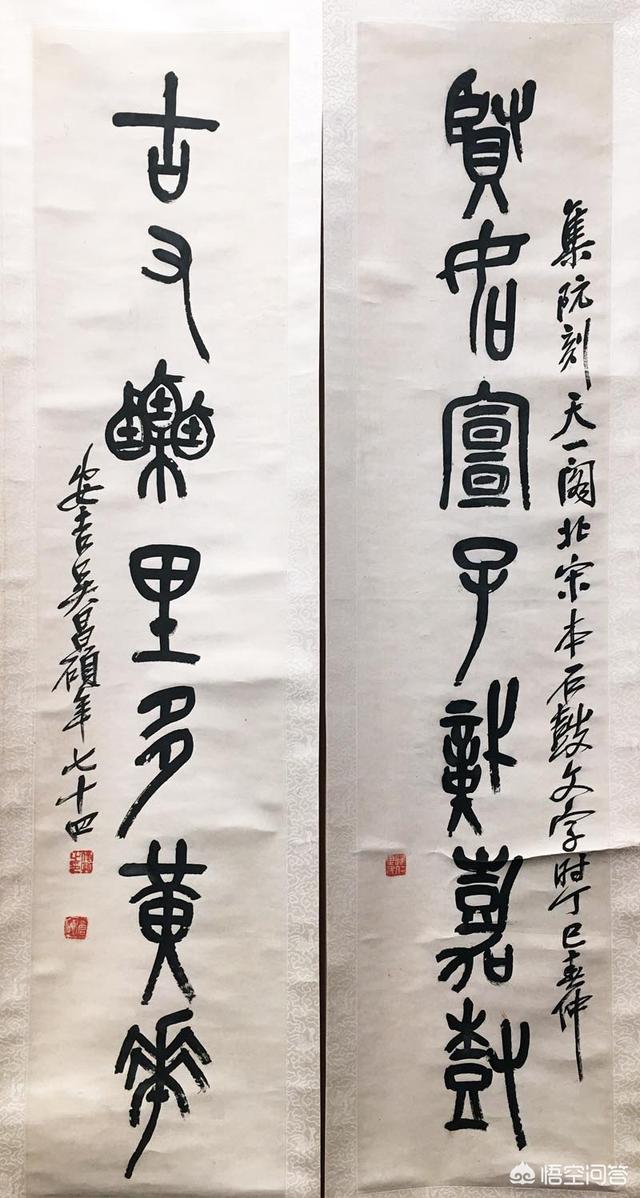 集阮刻天一閣北宋本石鼓文字時丁巳春仲
賢如宣子嘉尌
古又栗里多黄華
安吉吴昌碩年七十四
悟空问答